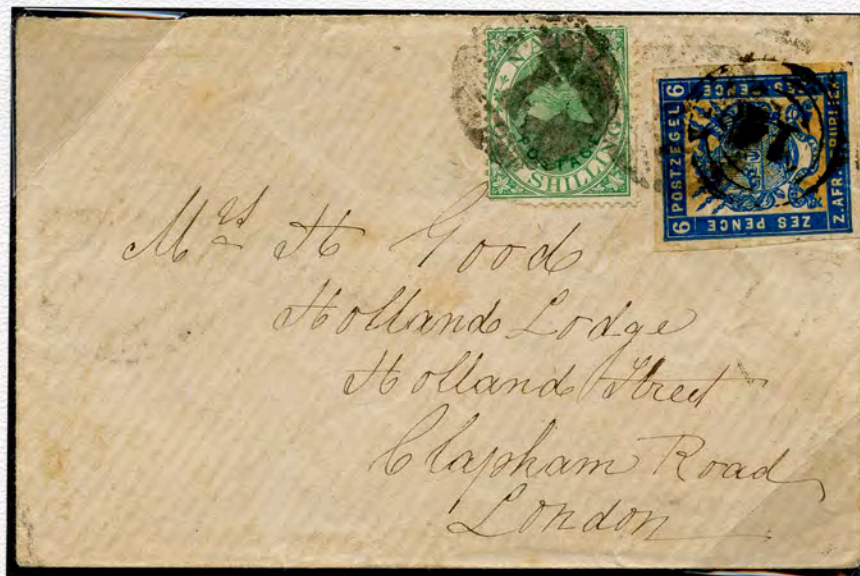 NATAL
POSTAGE
ONE SHILLING
6 POSTZEGEL 6
ZES PENCE
ZES PENCE
Z. AFR. REPUBLIEK
Mrs H Good
Holland Lodge
Holland Street
Clapham Road
London